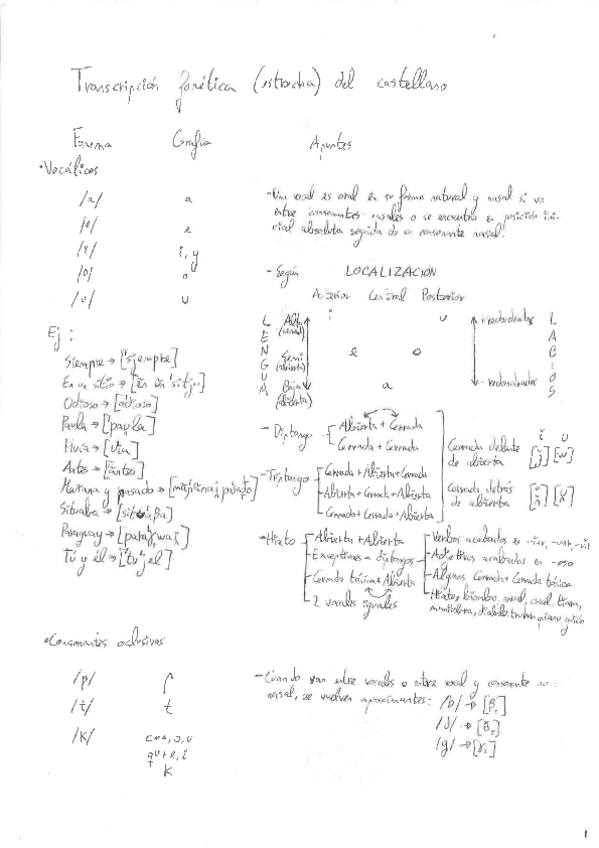 Transcripción fonética (estrecha) del castellano
Fonema Grafía Apuntes
•Vocálicos
/a/ a
/e/ e
/i/ i, y
/o/ o
/u/ u
-Una vocal es oral en su forma natural y nasal si va
entre consonantes nasales o se encuentra en posición ini-
cial absoluta seguida de una consonante nasal.
-Según LOCALIZACIÓN
Anterior Central Posterior
LENGUA
Alta (cerrada) i u
Semi (abierta) e o
Baja (abierta) a
+redondeados
-redondeados
LABIOS
Ej:
Siempre → ['sjempre]
En un sitio →
Odioso → [o'ðjoso]
Paula → ['paula]
Huía →
Antes → ['ãntes]
Mañana y pasado →
Situaba →
Paraguay →
Tú y él →
-Diptongo
Abierta + Cerrada
Cerrada + Cerrada
-Triptongo
Cerrada+Abierta+Cerrada
-Abierta+Cerrada+Abierta
Cerrada+Cerrada+Abierta
Cerrada delante i u
de abierta [j] [w]
Cerrada detrás
de abierta
•Hiato
Abierta + Abierta
-Excepciones a diptongos
-Cerrada tónica+Abierta
2 vocales iguales
Verbos acabados en -iar, -uar, -uir
-Adjetivos acabados en -oso
-Algunos Cerrada+Cerrada tónica
•Consonantes oclusivas
/p/ p
/t/ t
/k/ c+a, o, u
qu+e, i
k
-Cuando van entre vocales o entre vocal y consonante no
nasal, se vuelven aproximantes: /b/ → [β̞]
/d/ → [ð̞]
/g/ → [ɣ̞]
1